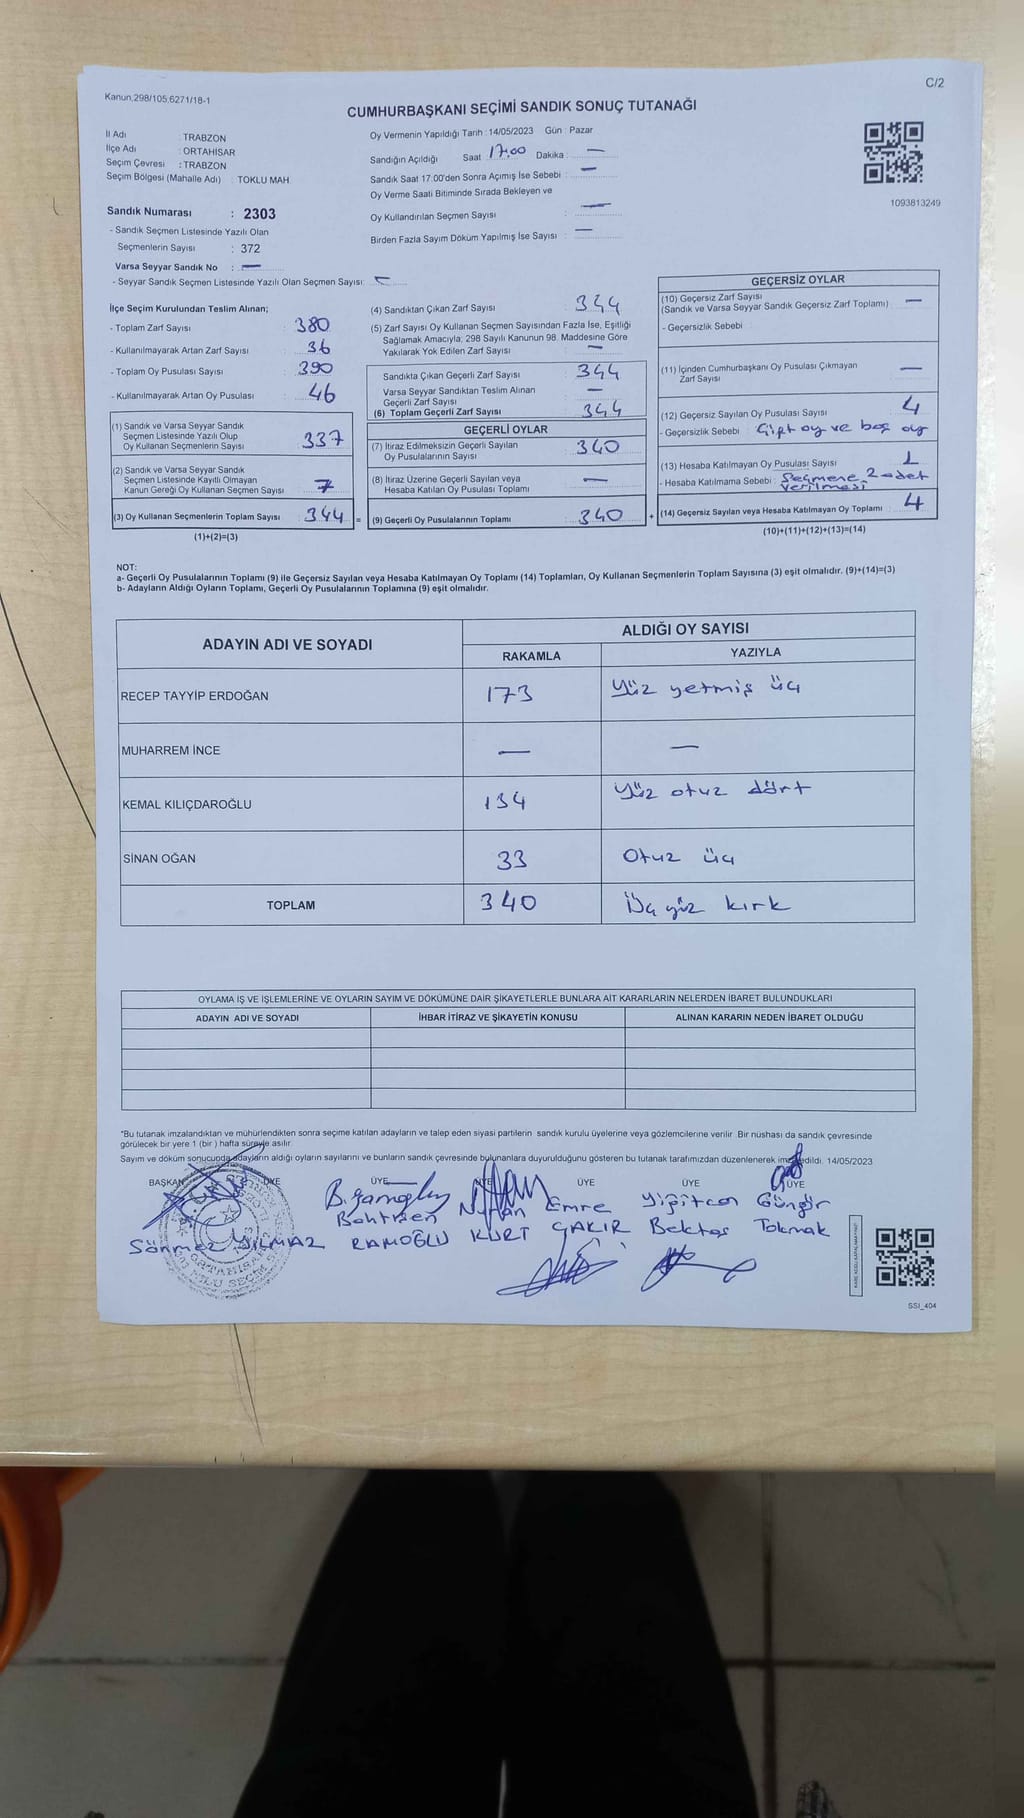 Kanun,298/105,6271/18-1
C/2
CUMHURBAŞKANI SEÇİMİ SANDIK SONUÇ TUTANAĞI
İl Adı : TRABZON
İlçe Adı : ORTAHİSAR
Seçim Çevresi : TRABZON
Seçim Bölgesi (Mahalle Adı) : TOKLU MAH.
Sandık Numarası : 2303
- Sandık Seçmen Listesinde Yazılı Olan
Seçmenlerin Sayısı : 372
Varsa Seyyar Sandık No : —
- Seyyar Sandık Seçmen Listesinde Yazılı Olan Seçmen Sayısı:
Oy Vermenin Yapıldığı Tarih : 14/05/2023 Gün : Pazar
Sandığın Açıldığı Saat 17:00 Dakika : —
Sandık Saat 17:00'den Sonra Açımış İse Sebebi : —
Oy Verme Saati Bitiminde Sırada Bekleyen ve
Oy Kullandırılan Seçmen Sayısı : —
Birden Fazla Sayım Döküm Yapılmış İse Sayısı : —
1093813249
İlçe Seçim Kurulundan Teslim Alınan;
- Toplam Zarf Sayısı : 380
- Kullanılmayarak Artan Zarf Sayısı : 36
- Toplam Oy Pusulası Sayısı : 390
- Kullanılmayarak Artan Oy Pusulası : 46
(1) Sandık ve Varsa Seyyar Sandık
Seçmen Listesinde Yazılı Olup
Oy Kullanan Seçmenlerin Sayısı 337
(2) Sandık ve Varsa Seyyar Sandık
Seçmen Listesinde Kayıtlı Olmayan
Kanun Gereği Oy Kullanan Seçmen Sayısı 7
(3) Oy Kullanan Seçmenlerin Toplam Sayısı 344 =
(1)+(2)=(3)
(4) Sandıktan Çıkan Zarf Sayısı 344
(5) Zarf Sayısı Oy Kullanan Seçmen Sayısından Fazla İse, Eşitliği
Sağlamak Amacıyla, 298 Sayılı Kanunun 98. Maddesine Göre
Yakılarak Yok Edilen Zarf Sayısı : —
Sandıkta Çıkan Geçerli Zarf Sayısı : 344
Varsa Seyyar Sandıktan Teslim Alınan
Geçerli Zarf Sayısı —
(6) Toplam Geçerli Zarf Sayısı 344
GEÇERLİ OYLAR
(7) İtiraz Edilmeksizin Geçerli Sayılan
Oy Pusulalarının Sayısı 340
(8) İtiraz Üzerine Geçerli Sayılan veya
Hesaba Katılan Oy Pusulası Toplamı —
(9) Geçerli Oy Pusulalarının Toplamı 340 +
GEÇERSİZ OYLAR
(10) Geçersiz Zarf Sayısı
(Sandık ve Varsa Seyyar Sandık Geçersiz Zarf Toplamı) —
- Geçersizlik Sebebi :
(11) İçinden Cumhurbaşkanı Oy Pusulası Çıkmayan
Zarf Sayısı —
(12) Geçersiz Sayılan Oy Pusulası Sayısı 4
- Geçersizlik Sebebi : Çift oy ve boş oy
(13) Hesaba Katılmayan Oy Pusulası Sayısı 1
- Hesaba Katılmama Sebebi : Seçmene 2 adet
verilmesi
(14) Geçersiz Sayılan veya Hesaba Katılmayan Oy Toplamı 4
(10)+(11)+(12)+(13)=(14)
NOT:
a- Geçerli Oy Pusulalarının Toplamı (9) ile Geçersiz Sayılan veya Hesaba Katılmayan Oy Toplamı (14) Toplamları, Oy Kullanan Seçmenlerin Toplam Sayısına (3) eşit olmalıdır. (9)+(14)=(3)
b- Adayların Aldığı Oyların Toplamı, Geçerli Oy Pusulalarının Toplamına (9) eşit olmalıdır.
ADAYIN ADI VE SOYADI ALDIĞI OY SAYISI
RAKAMLA YAZIYLA
RECEP TAYYİP ERDOĞAN 173 Yüz yetmiş üç
MUHARREM İNCE — —
KEMAL KILIÇDAROĞLU 134 Yüz otuz dört
SİNAN OĞAN 33 Otuz üç
TOPLAM 340 Üç yüz kırk
OYLAMA İŞ VE İŞLEMLERİNE VE OYLARIN SAYIM VE DÖKÜMÜNE DAİR ŞİKAYETLERLE BUNLARA AİT KARARLARIN NELERDEN İBARET BULUNDUKLARI
ADAYIN ADI VE SOYADI İHBAR İTİRAZ VE ŞİKAYETİN KONUSU ALINAN KARARIN NEDEN İBARET OLDUĞU
*Bu tutanak imzalandıktan ve mühürlendikten sonra seçime katılan adayların ve talep eden siyasi partilerin sandık kurulu üyelerine veya gözlemcilerine verilir. Bir nüshası da sandık çevresinde
görülecek bir yere 1 (bir) hafta süreyle asılır.
Sayım ve döküm sonucunda adayların aldığı oyların sayılarını ve bunların sandık çevresinde bulunanlara duyurulduğunu gösteren bu tutanak tarafımızdan düzenlenerek imza edildi. 14/05/2023
BAŞKAN ÜYE ÜYE ÜYE ÜYE ÜYE ÜYE
Nurhan Emre Yiğitcan Güngör
Sönmez YILMAZ RAMOĞLU KURT ÇAKIR Bektaş Tokmak
SSI_404